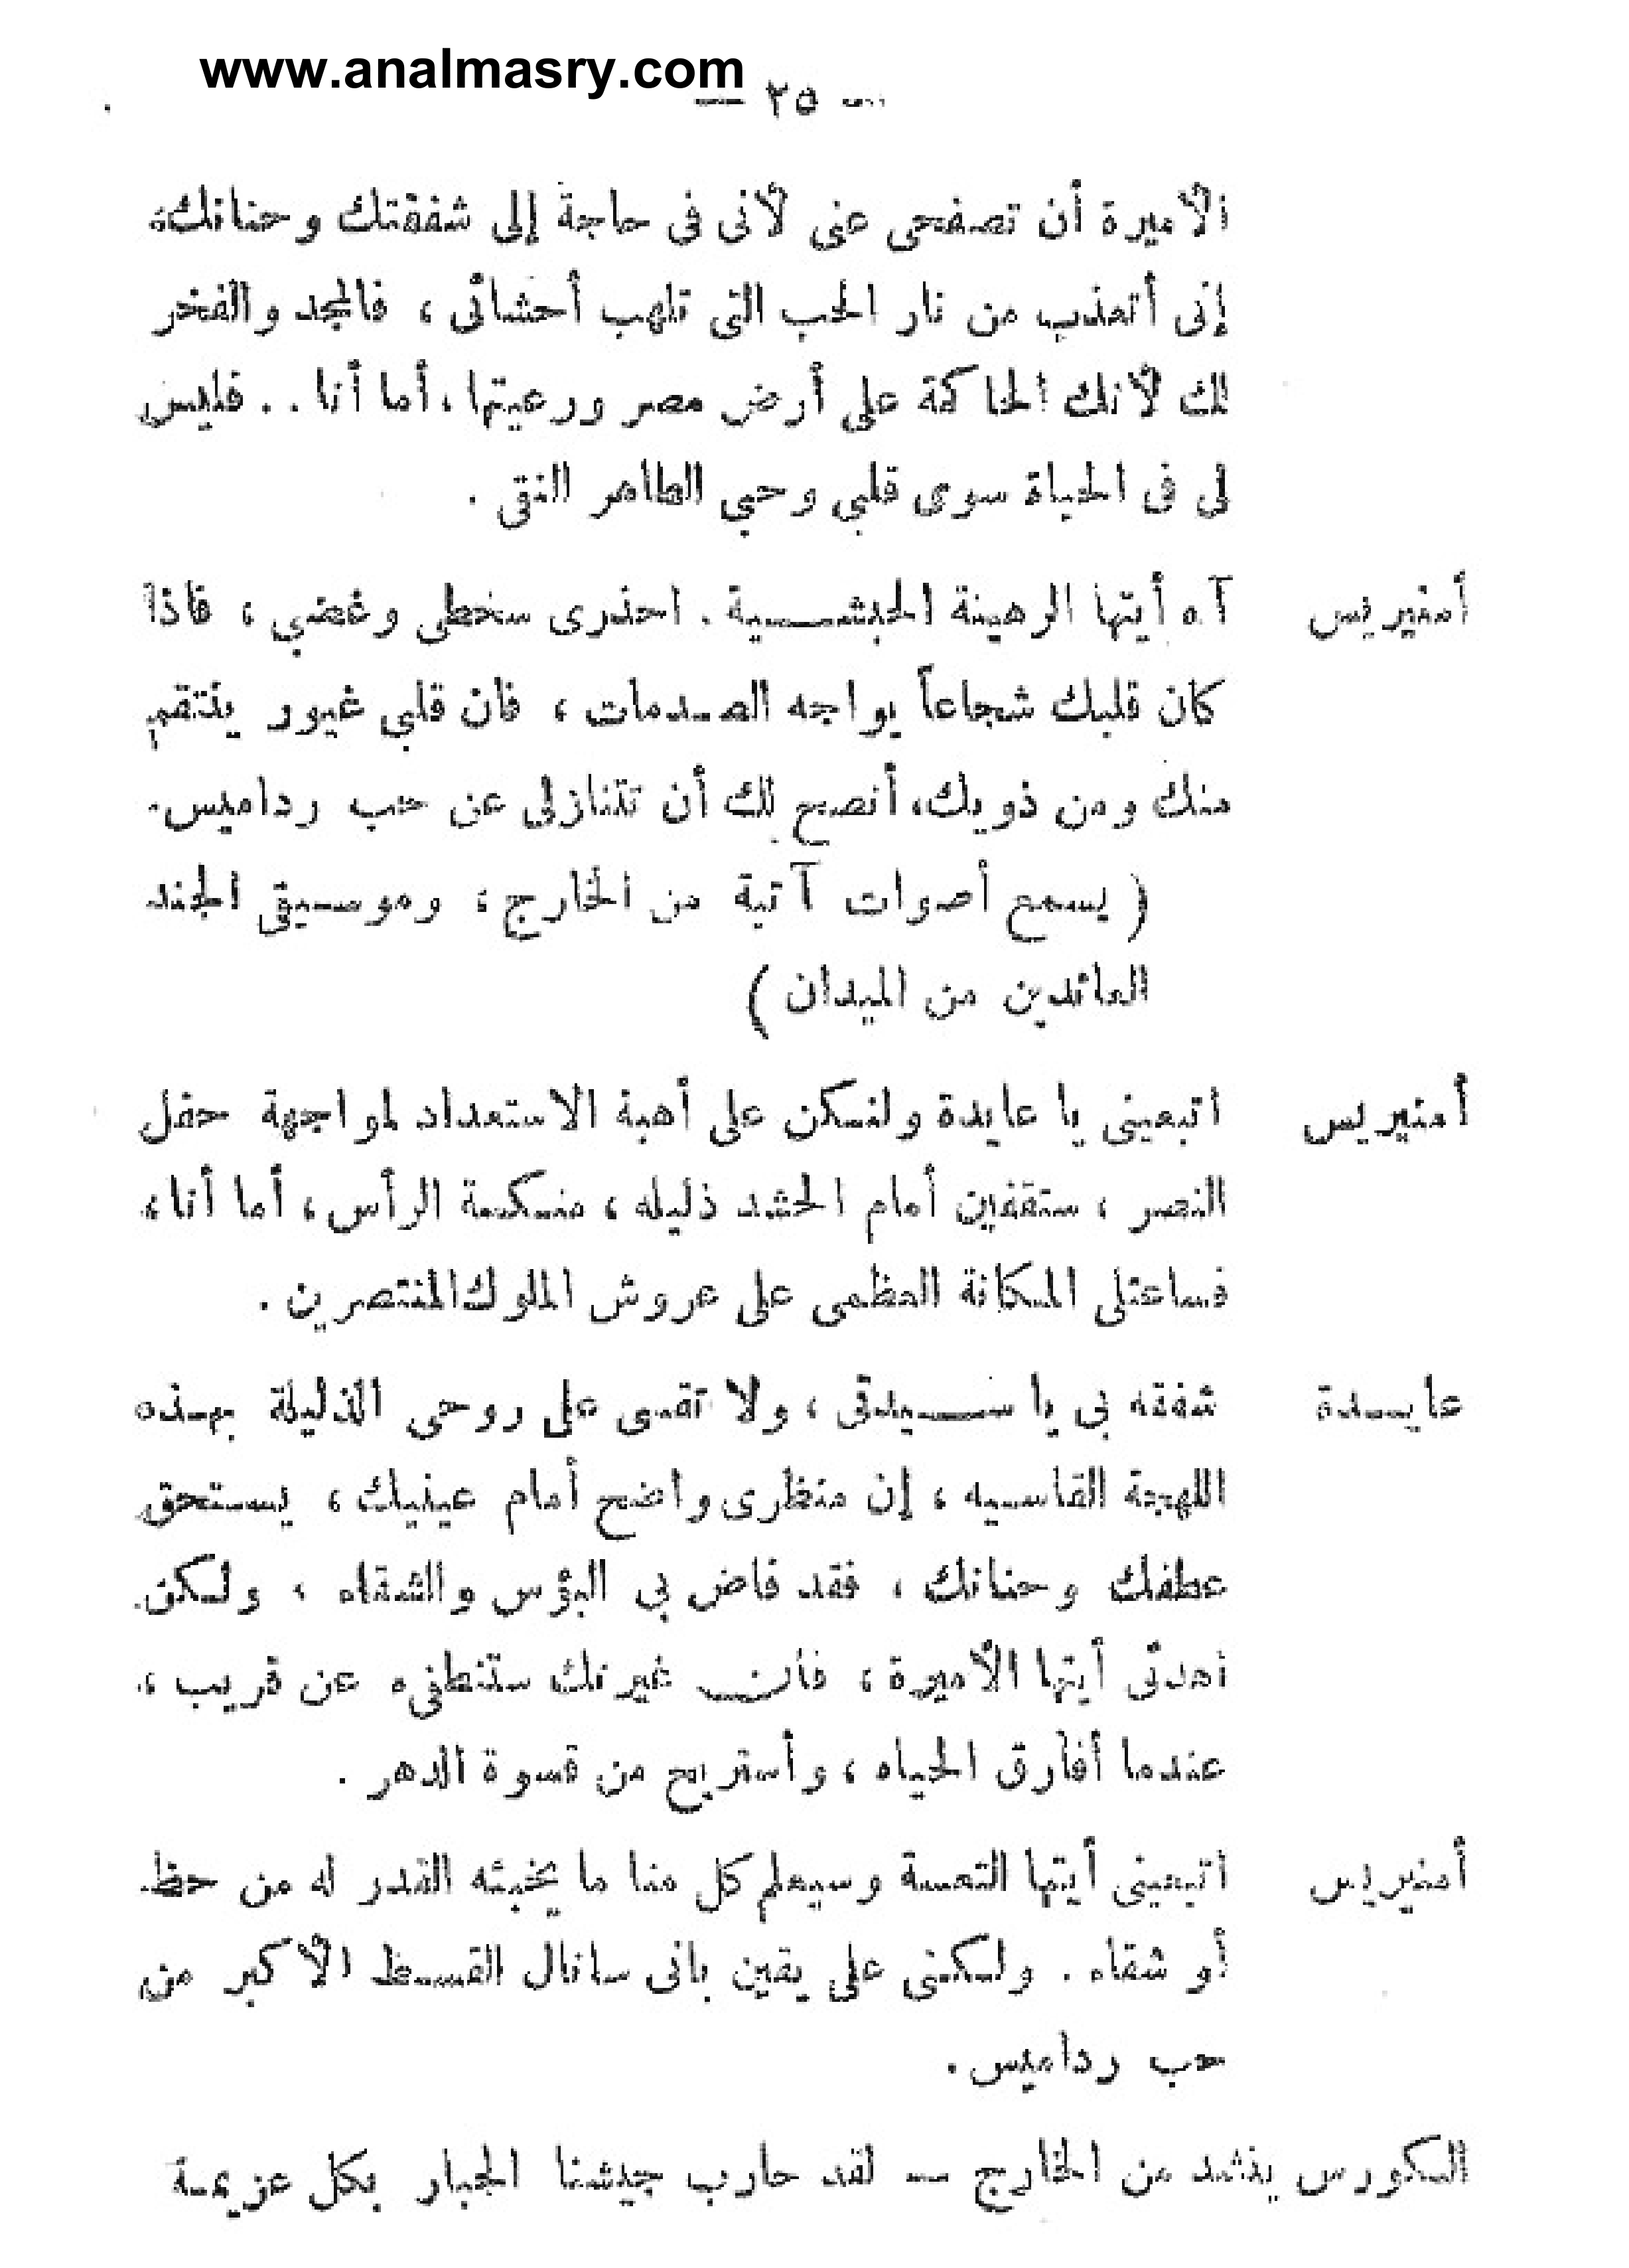 www.analmasry.com
— ٢٥ —
الأميرة أن تصفحى عنى لأنى فى حاجة إلى شفقتك وحنانك،
إنى أتعذب من نار الحب التى تلهب أحشائى ، فالمجد والفخر
لك لأنك الحاكمة على أرض مصر ورعيتها ، أما أنا . . فليس
لى فى الحياة سوى قلبى وحبى الطاهر النقى .
أمنيريس آه أيتها الرهينة الحبشية . احذرى سخطى وغضبي ، فاذا
كان قلبك شجاعاً يواجه الصدمات ، فان قلبى غيور ينتقم
منك ومن ذويك، أنصح لك أن تتنازلى عن حب رداميس.
( يسمع أصوات آتية من الخارج ؛ وموسيقى الجند
العائدين من الميدان )
أمنيريس اتبعينى يا عايدة ولنكن على أهبة الاستعداد لمواجهة حفل
النصر ، ستقفين أمام الحشد ذليله ، منكسة الرأس ، أما أنا ،
فساعتلى المكانة العظمى على عروش الملوك المنتصرين .
عايدة شفقه بى يا سيدتى ، ولا تقسى على روحى الذليلة بهذه
اللهجة القاسيه ، إن منظرى واضح أمام عينيك ، يستحق
عطفك وحنانك ، فقد فاض بى البؤس والشقاء ، ولكن
اهدئى أيتها الأميرة ، فان غيرتك ستنطفىء عن قريب ،
عندما أفارق الحياه ، وأستريح من قسوة الدهر .
أمنيريس اتبعينى أيتها التعسة وسيعلم كل منا ما يخبئه القدر له من حظ
أو شقاء . ولكنى على يقين بانى سانال القسط الأكبر من
حب رداميس .
الكورس ينشد من الخارج — لقد حارب جيشنا الجبار بكل عزيمة